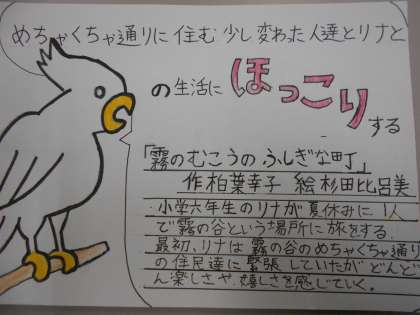 めちゃくちゃ通りに住む少し変わった人達とリナと
の生活にほっこりする
「霧のむこうのふしぎな町」
作柏葉幸子 絵杉田比呂美
小学六年生のリナが夏休みに1人
で霧の谷という場所に旅をする。
最初、リナは霧の谷のめちゃくちゃ通り
の住民達に緊張していたがどんど
ん楽しさや嬉しさを感じていく。